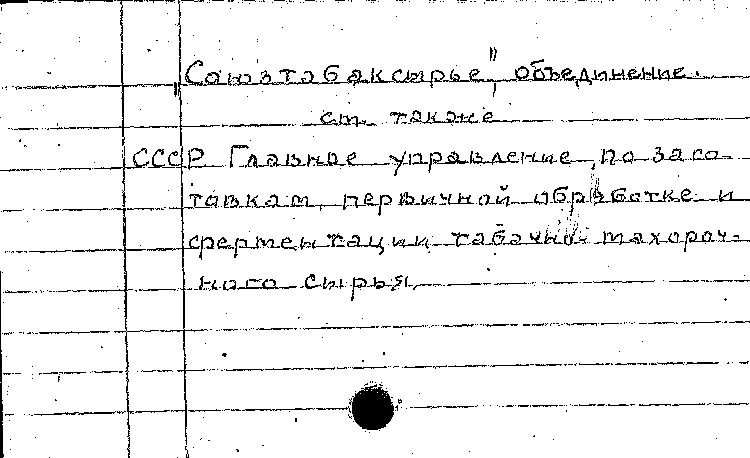 „Союзтабаксырье", объединение.
см. также
СССР Главное управление по заго-
товкам, первичной обработке и
ферментации табачно-махороч-
ного сырья.